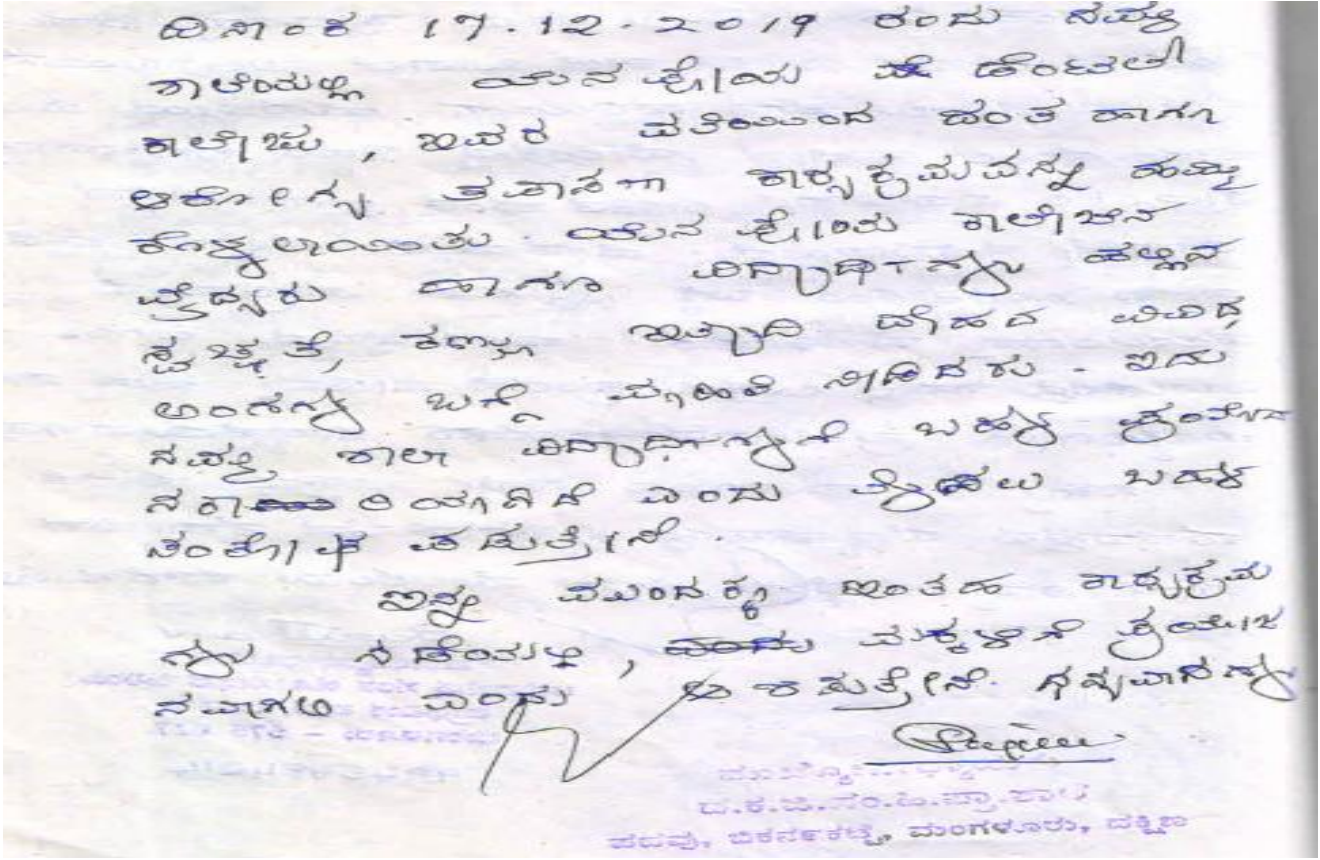 ದಿನಾಂಕ 17.12.2019 ರಂದು ನಮ್ಮ
ಶಾಲೆಯಲ್ಲಿ ಯೆನಪೋಯ ಡೆಂಟಲ್
ಕಾಲೇಜು, ಇವರ ವತಿಯಿಂದ ದಂತ ಹಾಗೂ
ಆರೋಗ್ಯ ತಪಾಸಣಾ ಕಾರ್ಯಕ್ರಮವನ್ನು ಹಮ್ಮಿ
ಕೊಳ್ಳಲಾಯಿತು. ಯೆನಪೋಯ ಕಾಲೇಜಿನ
ವೈದ್ಯರು ಹಾಗೂ ವಿದ್ಯಾರ್ಥಿಗಳು ಹಲ್ಲಿನ
ಸ್ವಚ್ಛತೆ, ಕಣ್ಣು ಇತ್ಯಾದಿ ದೇಹದ ವಿವಿಧ
ಅಂಗಗಳ ಬಗ್ಗೆ ಮಾಹಿತಿ ನೀಡಿದರು. ಇದು
ನಮ್ಮ ಶಾಲಾ ವಿದ್ಯಾರ್ಥಿಗಳಿಗೆ ಬಹಳ ಪ್ರಯೋಜ
ನಕಾರಿಯಾಗಿದೆ ಎಂದು ಬಹಳ
ಸಂತೋಷ ಪಡುತ್ತೇನೆ.
ಇನ್ನು ಮುಂದಕ್ಕೂ ಇಂತಹ ಕಾರ್ಯಕ್ರಮ
ಗಳು ನಡೆಯಲಿ, ಮಕ್ಕಳಿಗೆ ಪ್ರಯೋಜ
ನವಾಗಲಿ ಎಂದು ಆಶಿಸುತ್ತೇನೆ. ಧನ್ಯವಾದಗಳು
ದ.ಕ.ಜಿ.ಪಂ.ಹಿ.ಪ್ರಾ.ಶಾಲೆ
ಪದವು, ಬಿಕರ್ನಕಟ್ಟೆ, ಮಂಗಳೂರು, ದಕ್ಷಿಣ